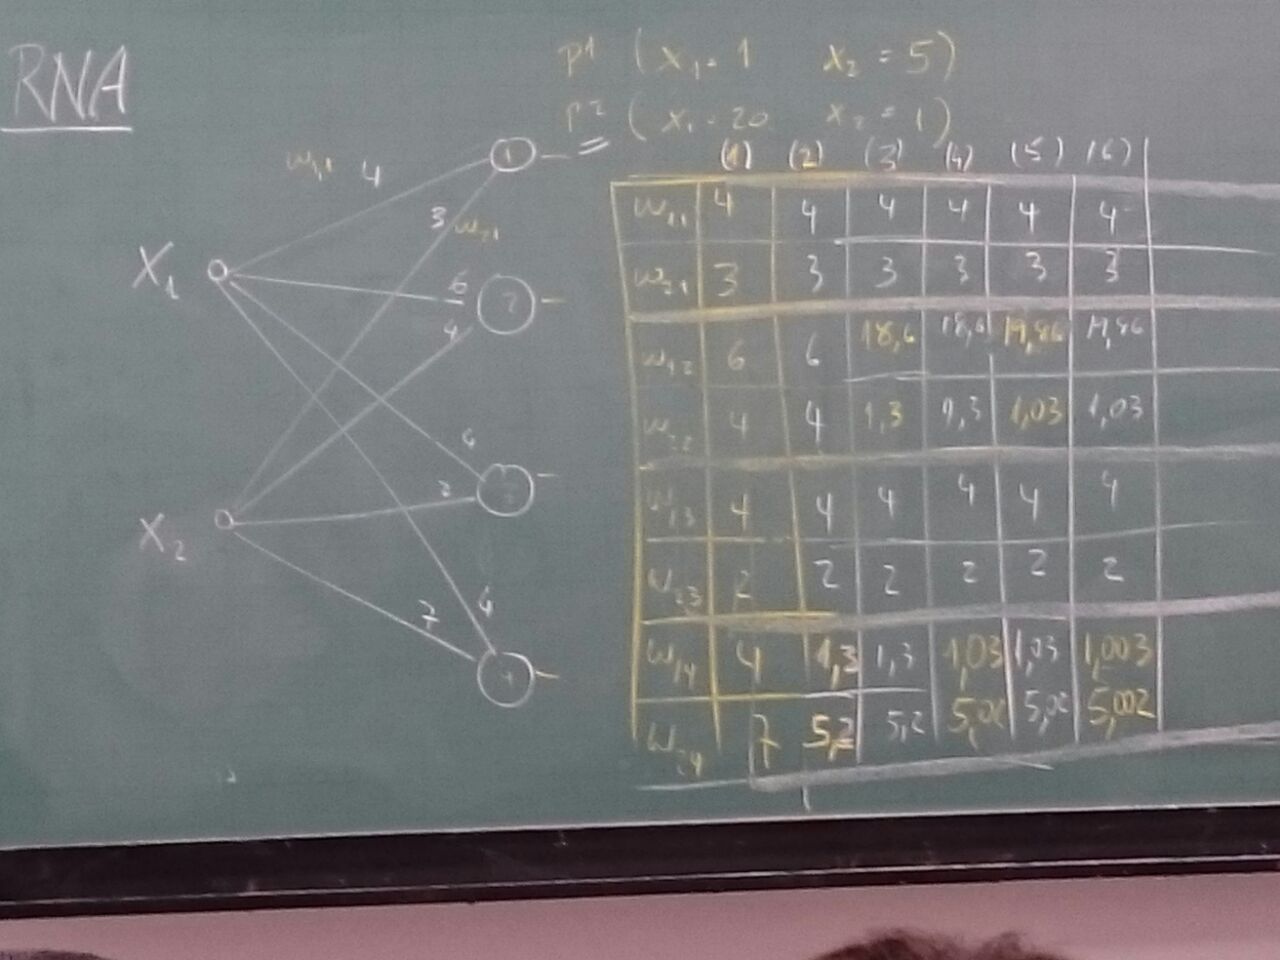 RNA
p1 (x₁ = 1 x₂ = 5)
p2 (x₁ = 20 x₂ = 1)
w₁₁ 4
3 w₂₁
X₁
6
4
4
2
X₂
7
4
(1) (2) (3) (4) (5) (6)
w₁₁ 4 4 4 4 4 4
w₂₁ 3 3 3 3 3 3
w₁₂ 6 6 18,6 18,6 19,86 19,86
w₂₂ 4 4 1,3 1,3 1,03 1,03
w₁₃ 4 4 4 4 4 4
w₂₃ 2 2 2 2 2 2
w₁₄ 4 1,3 1,3 1,03 1,03 1,003
w₂₄ 7 5,2 5,2 5,02 5,02 5,002